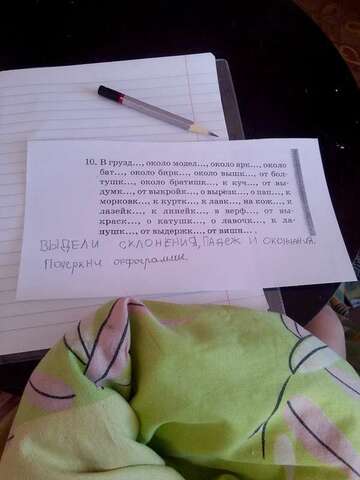 10. В грузд..., около модел..., около арк..., около
бат..., около бирк..., около вышк..., от бол-
тушк..., около братишк..., к куч..., от вы-
думк..., от выкройк..., о вырезк..., о пап..., к
морковк..., к куртк..., к лавк..., на кож..., к
лазейк..., к линейк..., в верф..., от вы-
краск..., о катушк..., о лавочк..., к ла-
пушк..., от выдержк..., от вишн... .
ВЫДЕЛИ СКЛОНЕНИЯ, ПАДЕЖ И ОКОНЧАНИЯ.
Подчеркни орфограммы